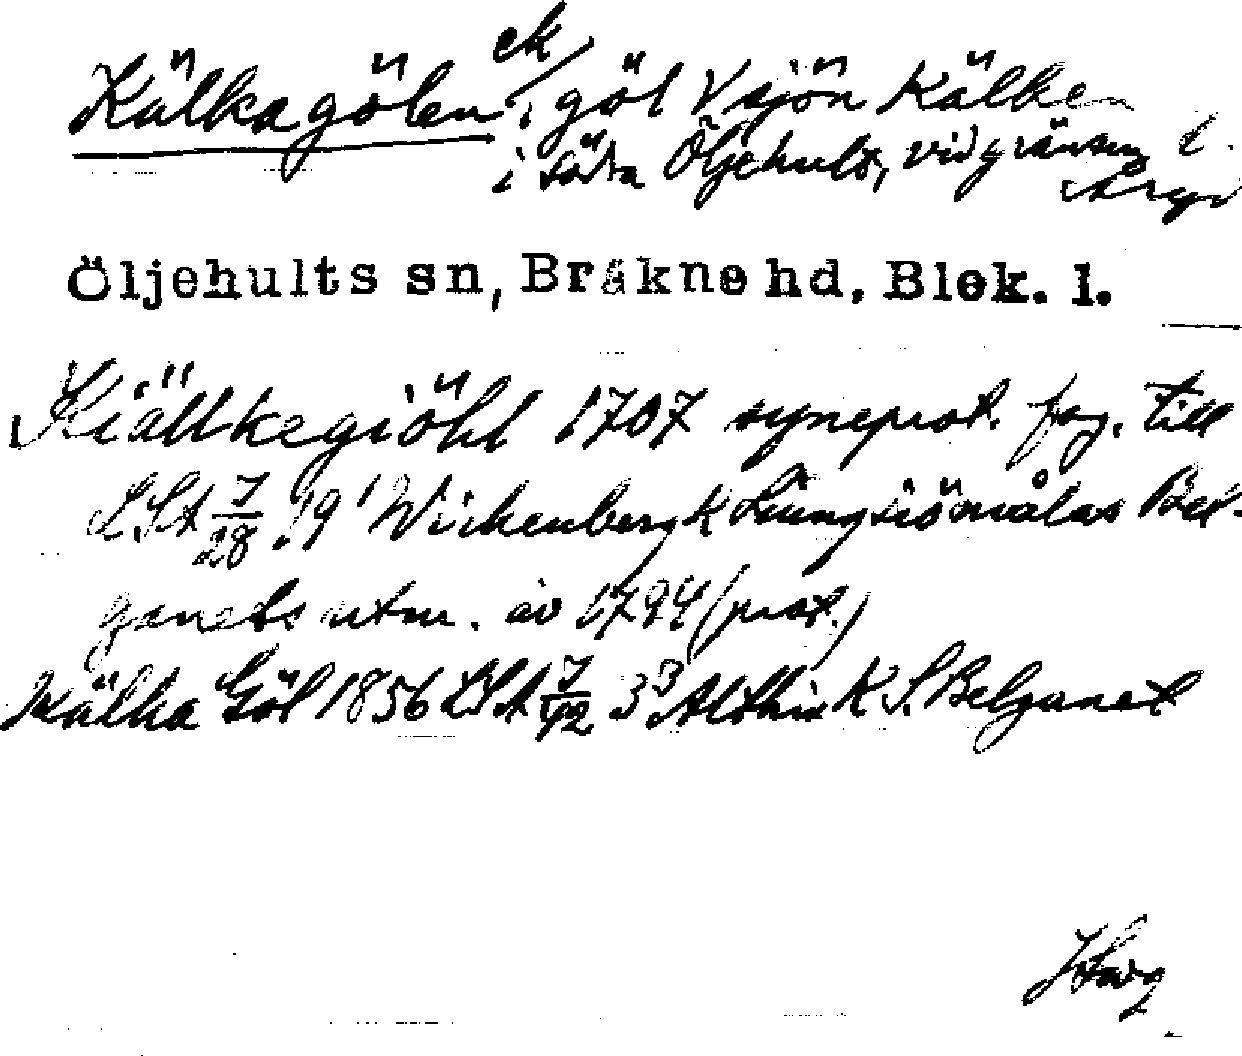 Kälkagölen, göl V sjön Kälken
i södra Öljehult, vid gränsen t.
Öljehults sn, Bräkne hd, Blek. l.
Kiällkegiöhl 1707 syneprot. fog. till
LSt 7/28 19 Wirkenberg K Liungsiömålas Bel-
ganets utm. av 1794 (prot.)
Kälka Göl 1856 LSt 7/42 3³ Althin K S. Belganet